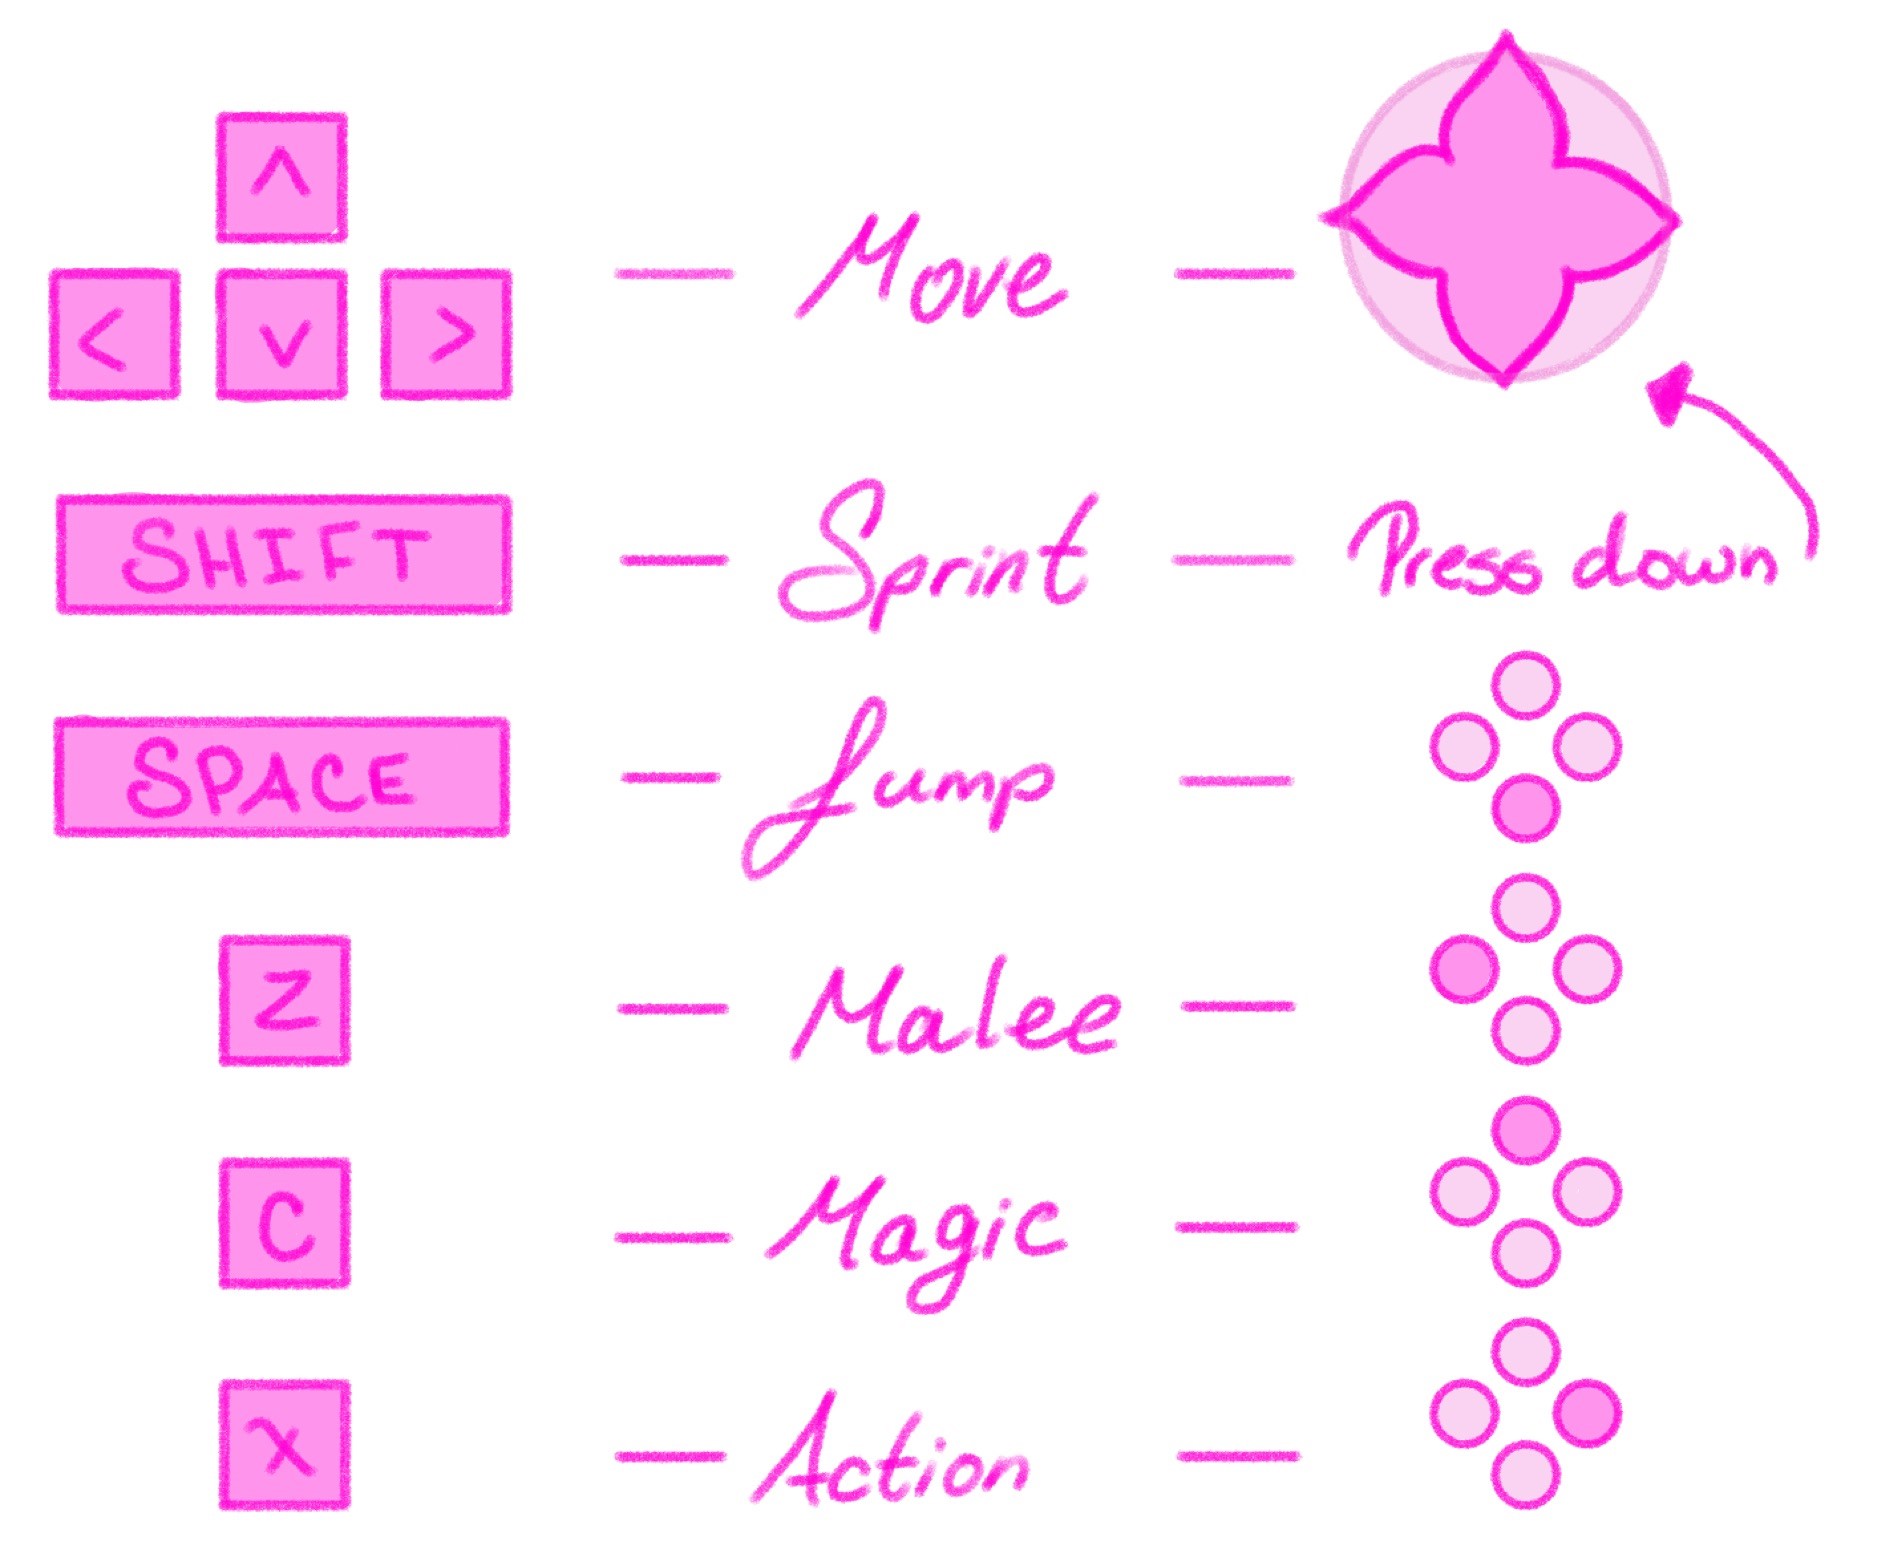 ^
< v > — Move —
SHIFT — Sprint — Press down
SPACE — Jump —
Z — Malee —
C — Magic —
X — Action —